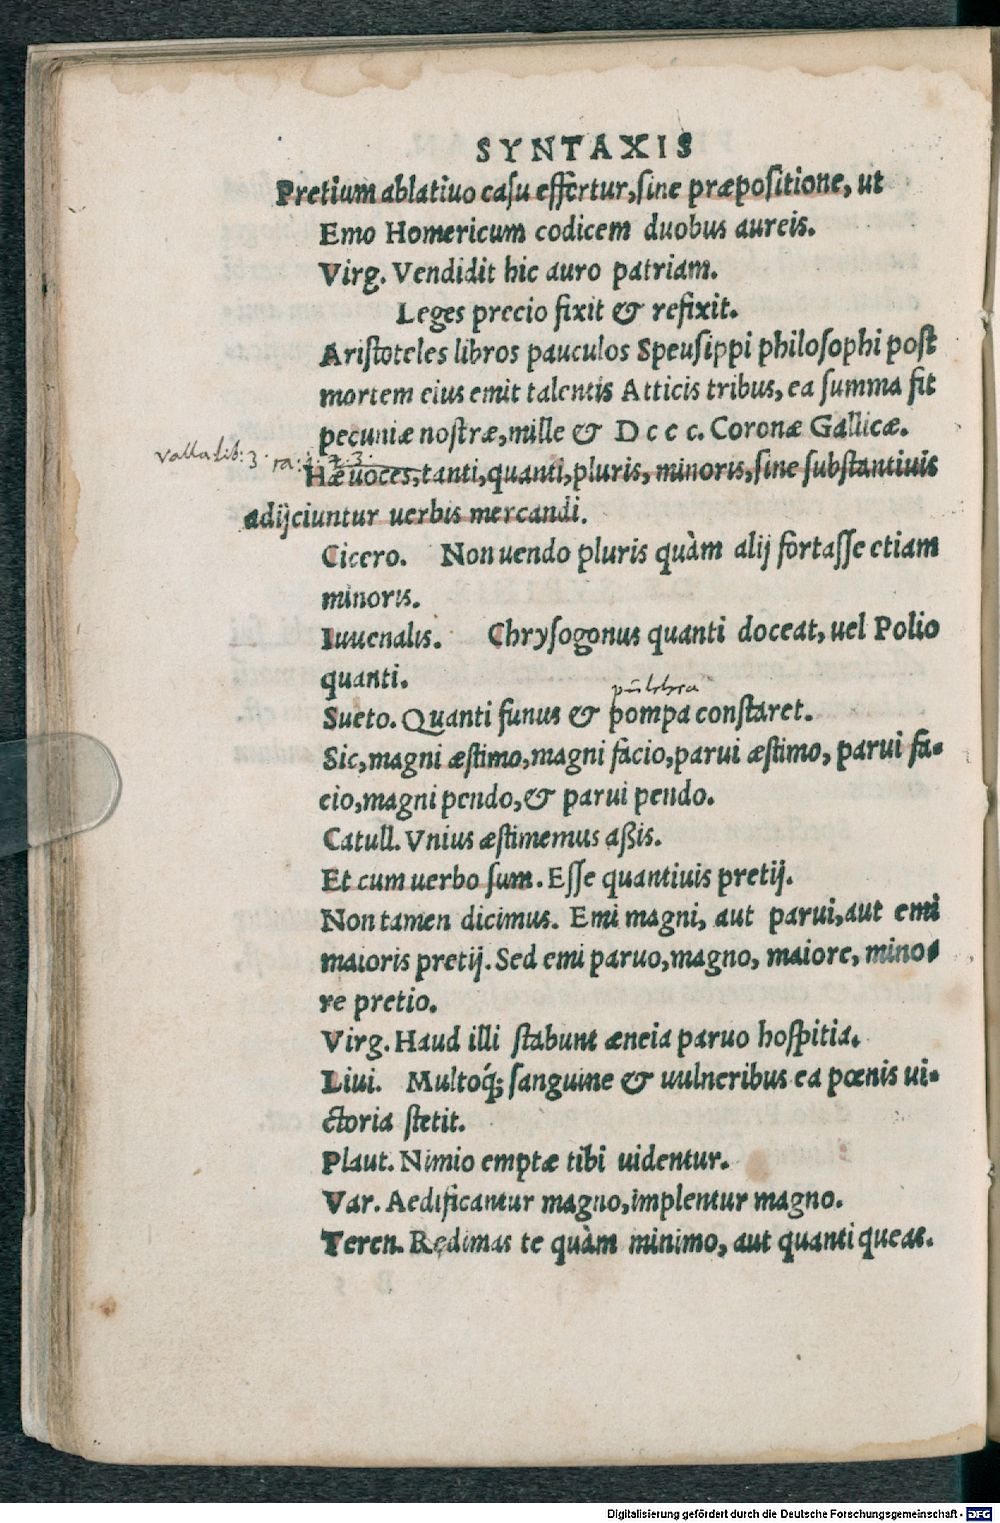 SYNTAXIS
Pretium ablatiuo casu effertur, sine præpositione, ut
Emo Homericum codicem duobus aureis.
Virg. Vendidit hic auro patriam.
Leges precio fixit & refixit.
Aristoteles libros pauculos Speusippi philosophi post
mortem eius emit talentis Atticis tribus, ea summa fit
pecuniæ nostræ, mille & D c c c. Coronæ Gallicæ.
valla lib: 3
Hæ uoces, tanti, quanti, pluris, minoris, sine substantiuis
adijciuntur uerbis mercandi.
Cicero. Non uendo pluris quàm alij fortasse etiam
minoris.
Iuuenalis. Chrysogonus quanti doceat, uel Polio
quanti.
Sueto. Quanti funus & pompa constaret.
Sic, magni æstimo, magni facio, parui æstimo, parui fa-
cio, magni pendo, & parui pendo.
Catull. Vnius æstimemus aßis.
Et cum uerbo sum. Esse quantiuis pretij.
Non tamen dicimus. Emi magni, aut parui, aut emi
maioris pretij. Sed emi paruo, magno, maiore, mino-
re pretio.
Virg. Haud illi stabunt æneia paruo hospitia.
Liui. Multoq́; sanguine & uulneribus ea pœnis ui-
ctoria stetit.
Plaut. Nimio emptæ tibi uidentur.
Var. Aedificantur magno, implentur magno.
Teren. Redimas te quàm minimo, aut quanti queas.
Digitalisierung gefördert durch die Deutsche Forschungsgemeinschaft - DFG